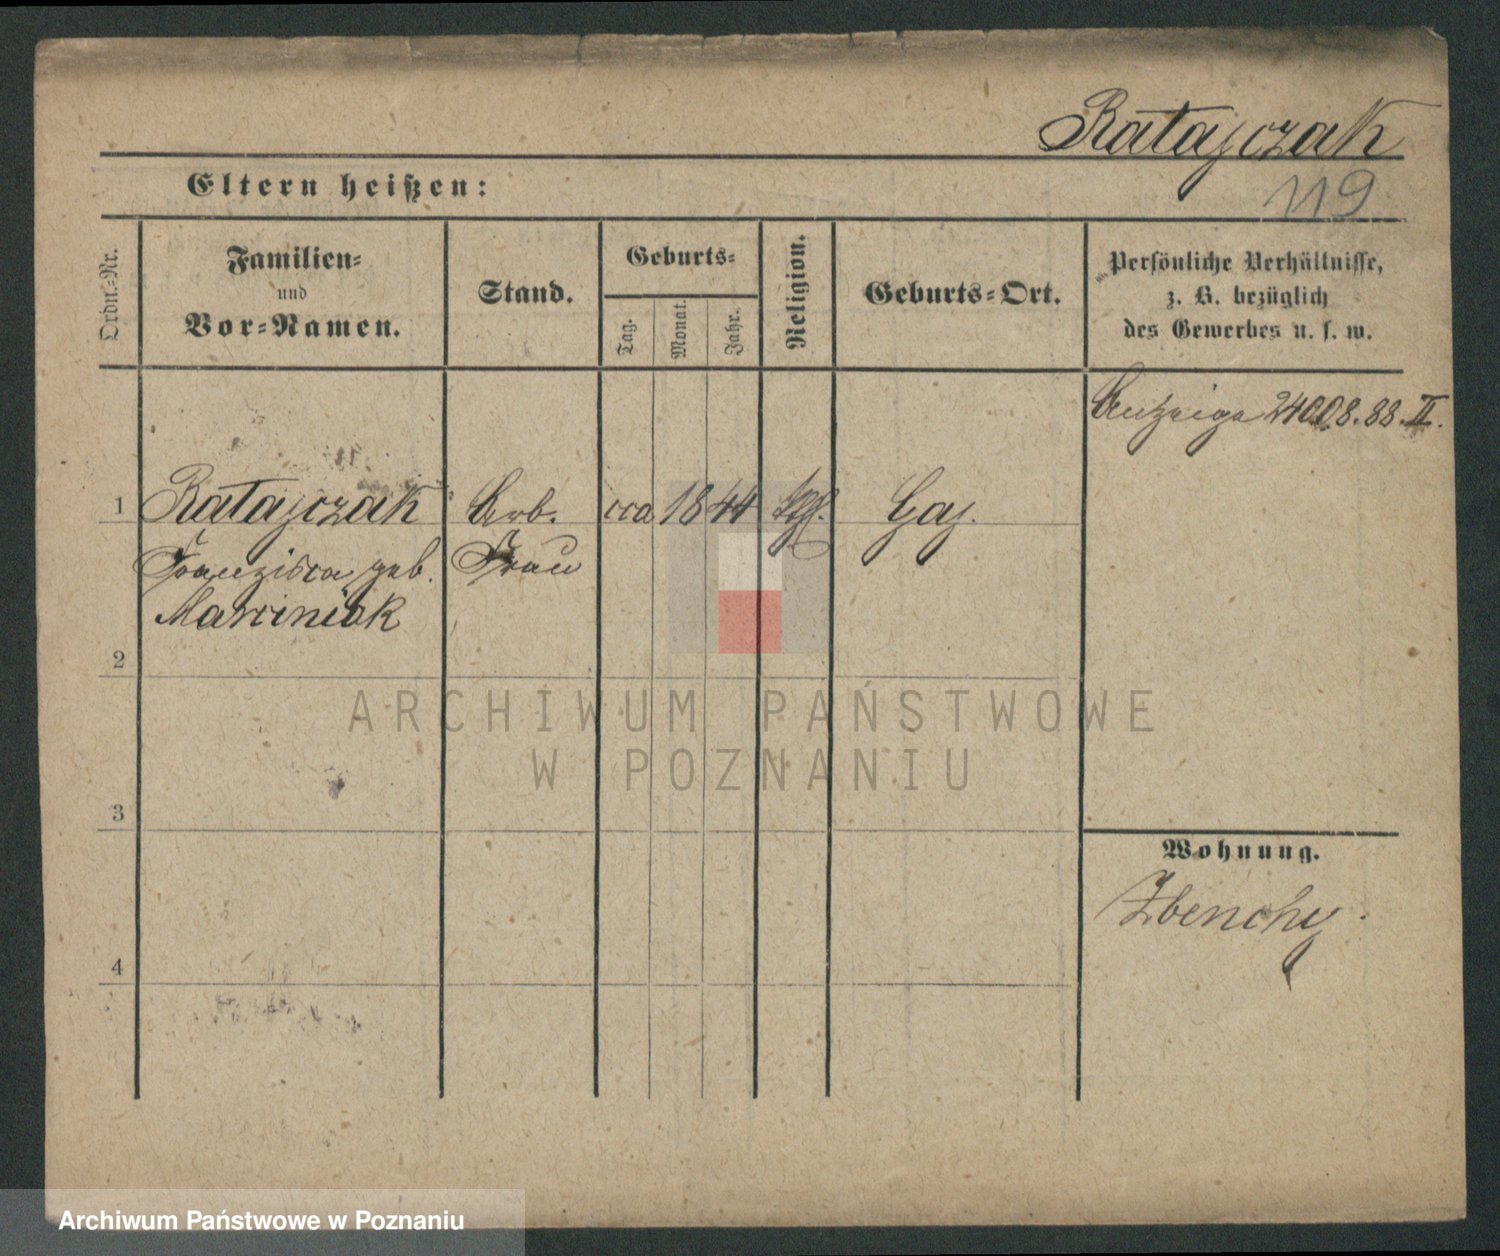 Ratajczak
Eltern heißen:
119
Ordn.-Nr.
Familien-
und
Vor-Namen.
Stand.
Geburts-
Tag.
Monat.
Jahr.
Religion.
Geburts-Ort.
Persönliche Verhältnisse,
z. B. bezüglich
des Gewerbes u. s. w.
Anzeige 24008.88.II.
1 Ratajczak Arb. cca 1844 Gaj.
Franziska geb. Frau
Marciniak
2
ARCHIWUM PAŃSTWOWE
W POZNANIU
3
Wohnung.
Zbenchy.
4
Archiwum Państwowe w Poznaniu